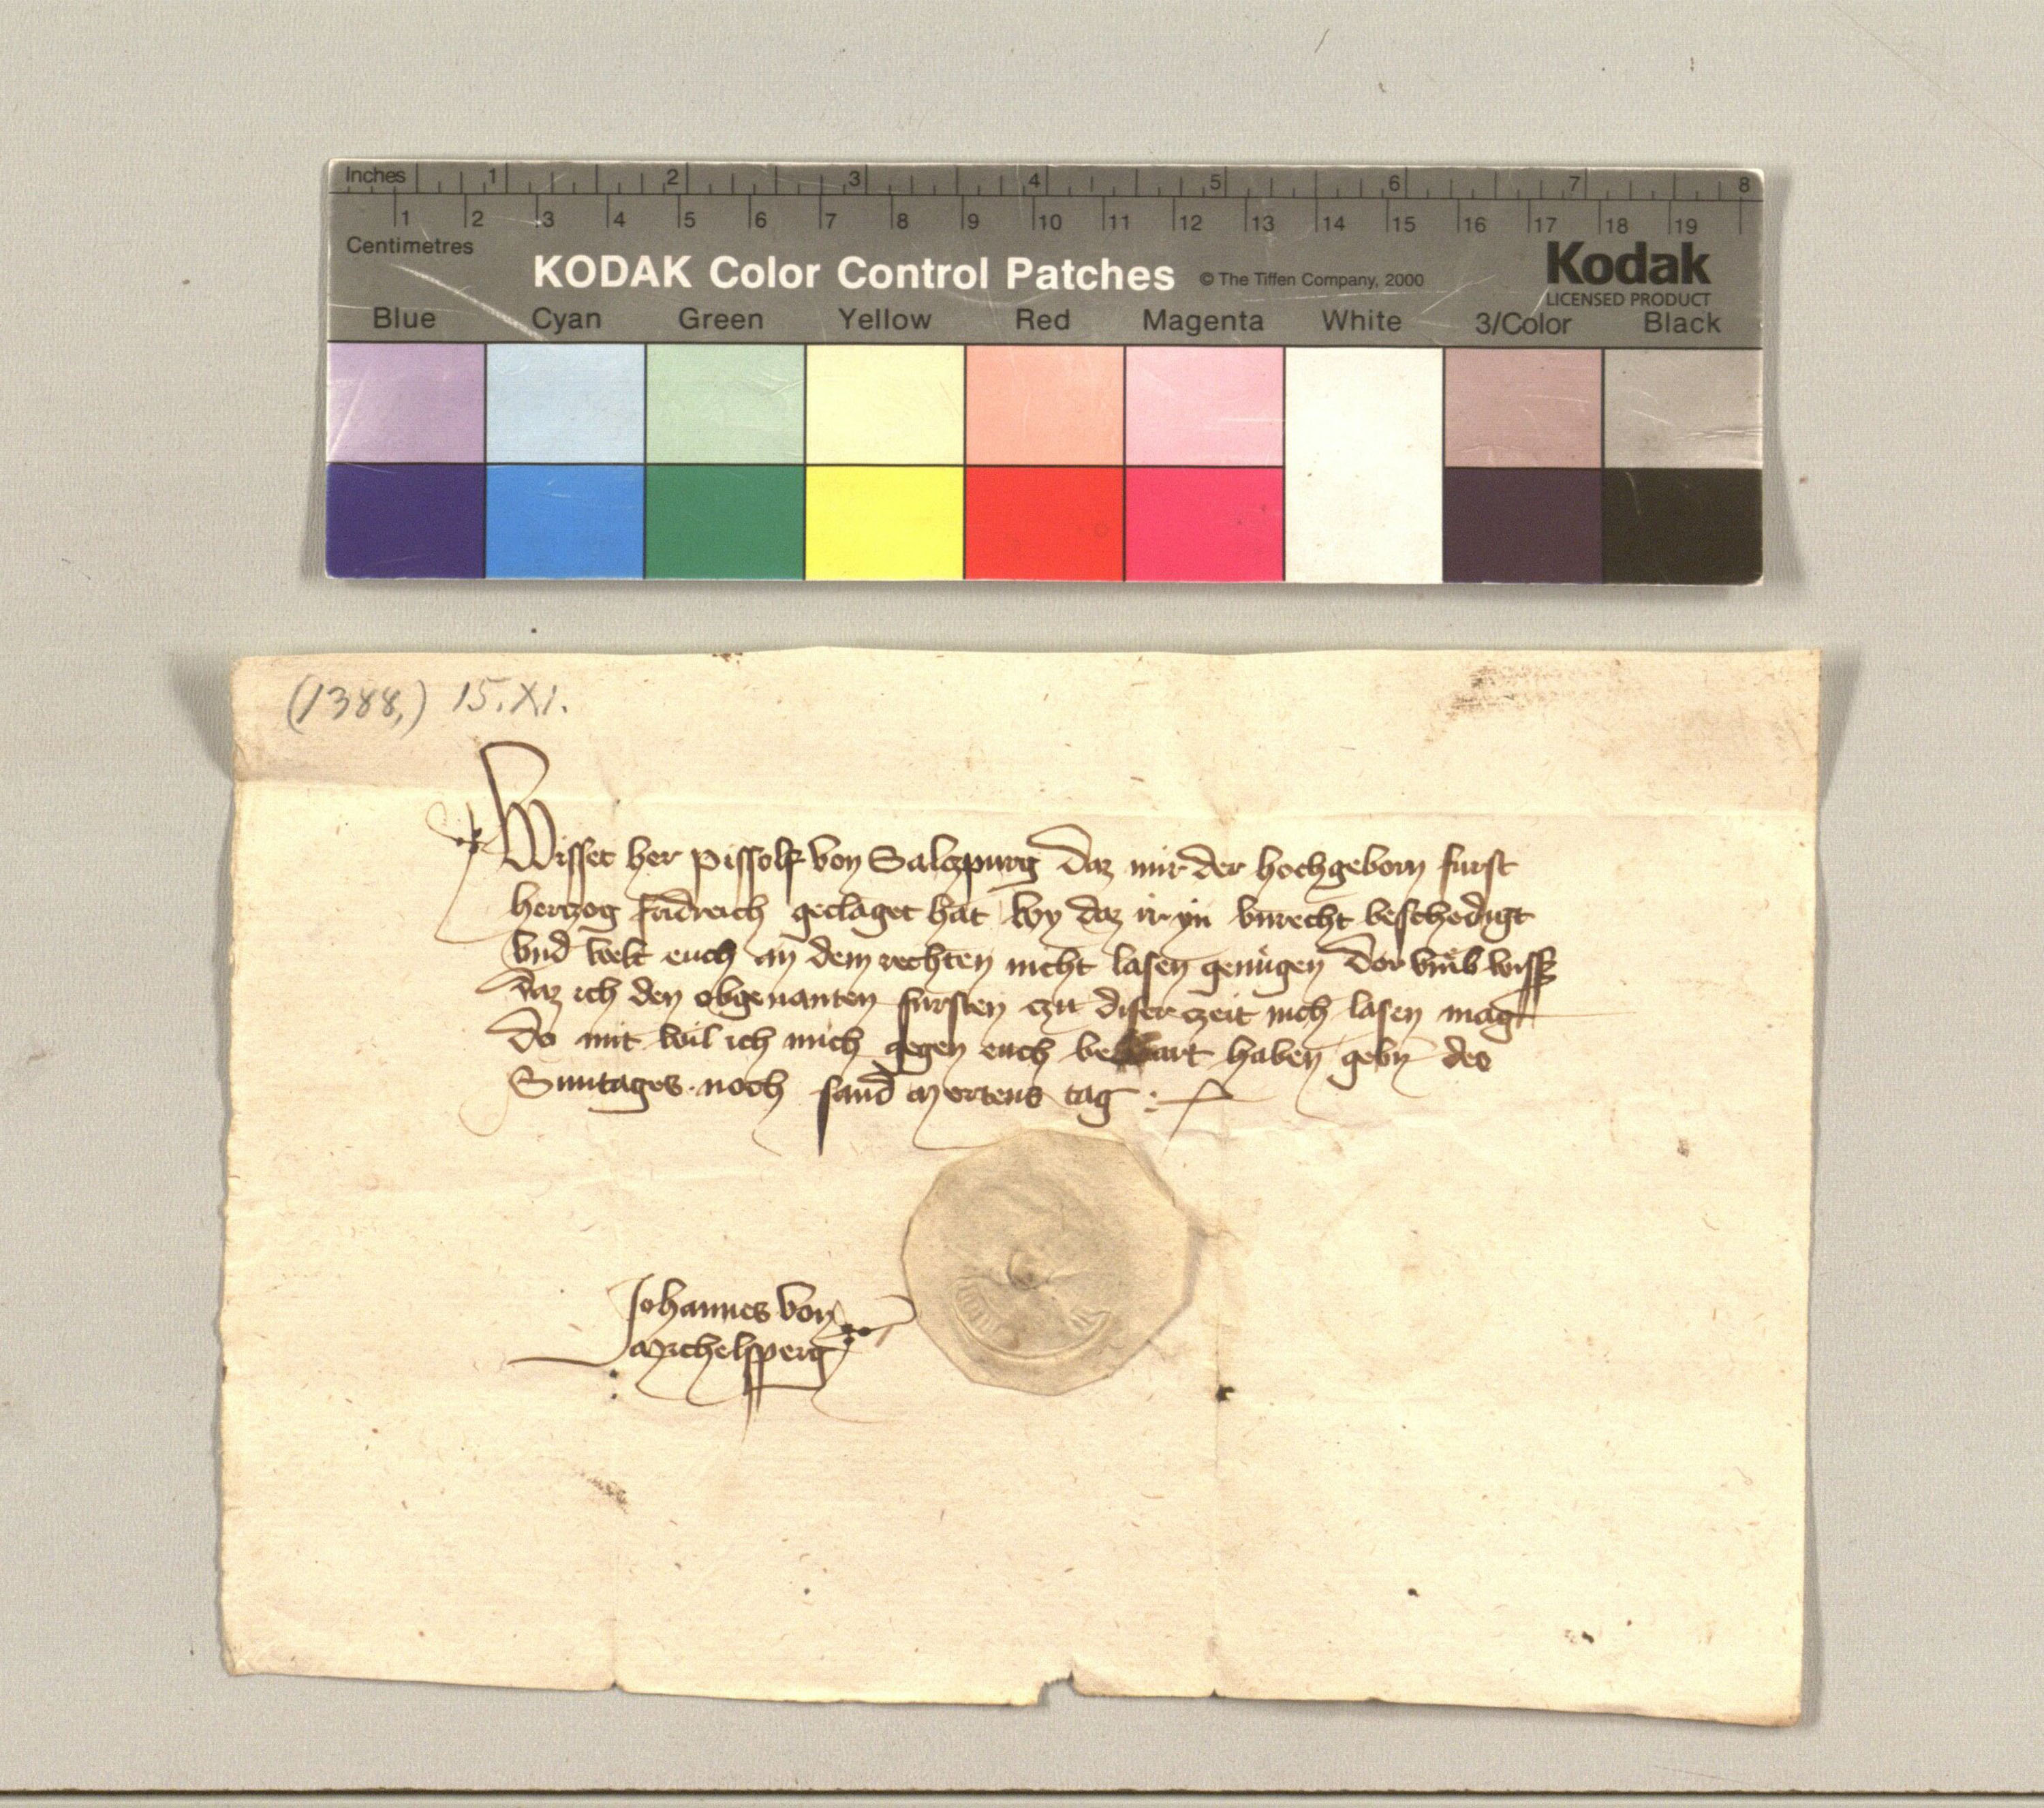 Inches 1 2 3 4 5 6 7 8
1 2 3 4 5 6 7 8 9 10 11 12 13 14 15 16 17 18 19
Centimetres
KODAK Color Control Patches © The Tiffen Company, 2000 Kodak
LICENSED PRODUCT
Blue Cyan Green Yellow Red Magenta White 3/Color Black
(1388,) 15.XI.
Wisset her pissolf von Salczpurg daz mir der hochgeborn furst
hertzog fridreich geclaget hat wy daz ir yn vnrecht beschedigt
vnd welt euch an dem rechten nicht lasen genugen dor vmb wiss
daz ich den obgenanten fursten czu diser czeit nich lasen mag
do mit wil ich mich gegen euch bewart haben gebn des
Suntages noch sand Mertens tag
Johannes von
Michelsperg